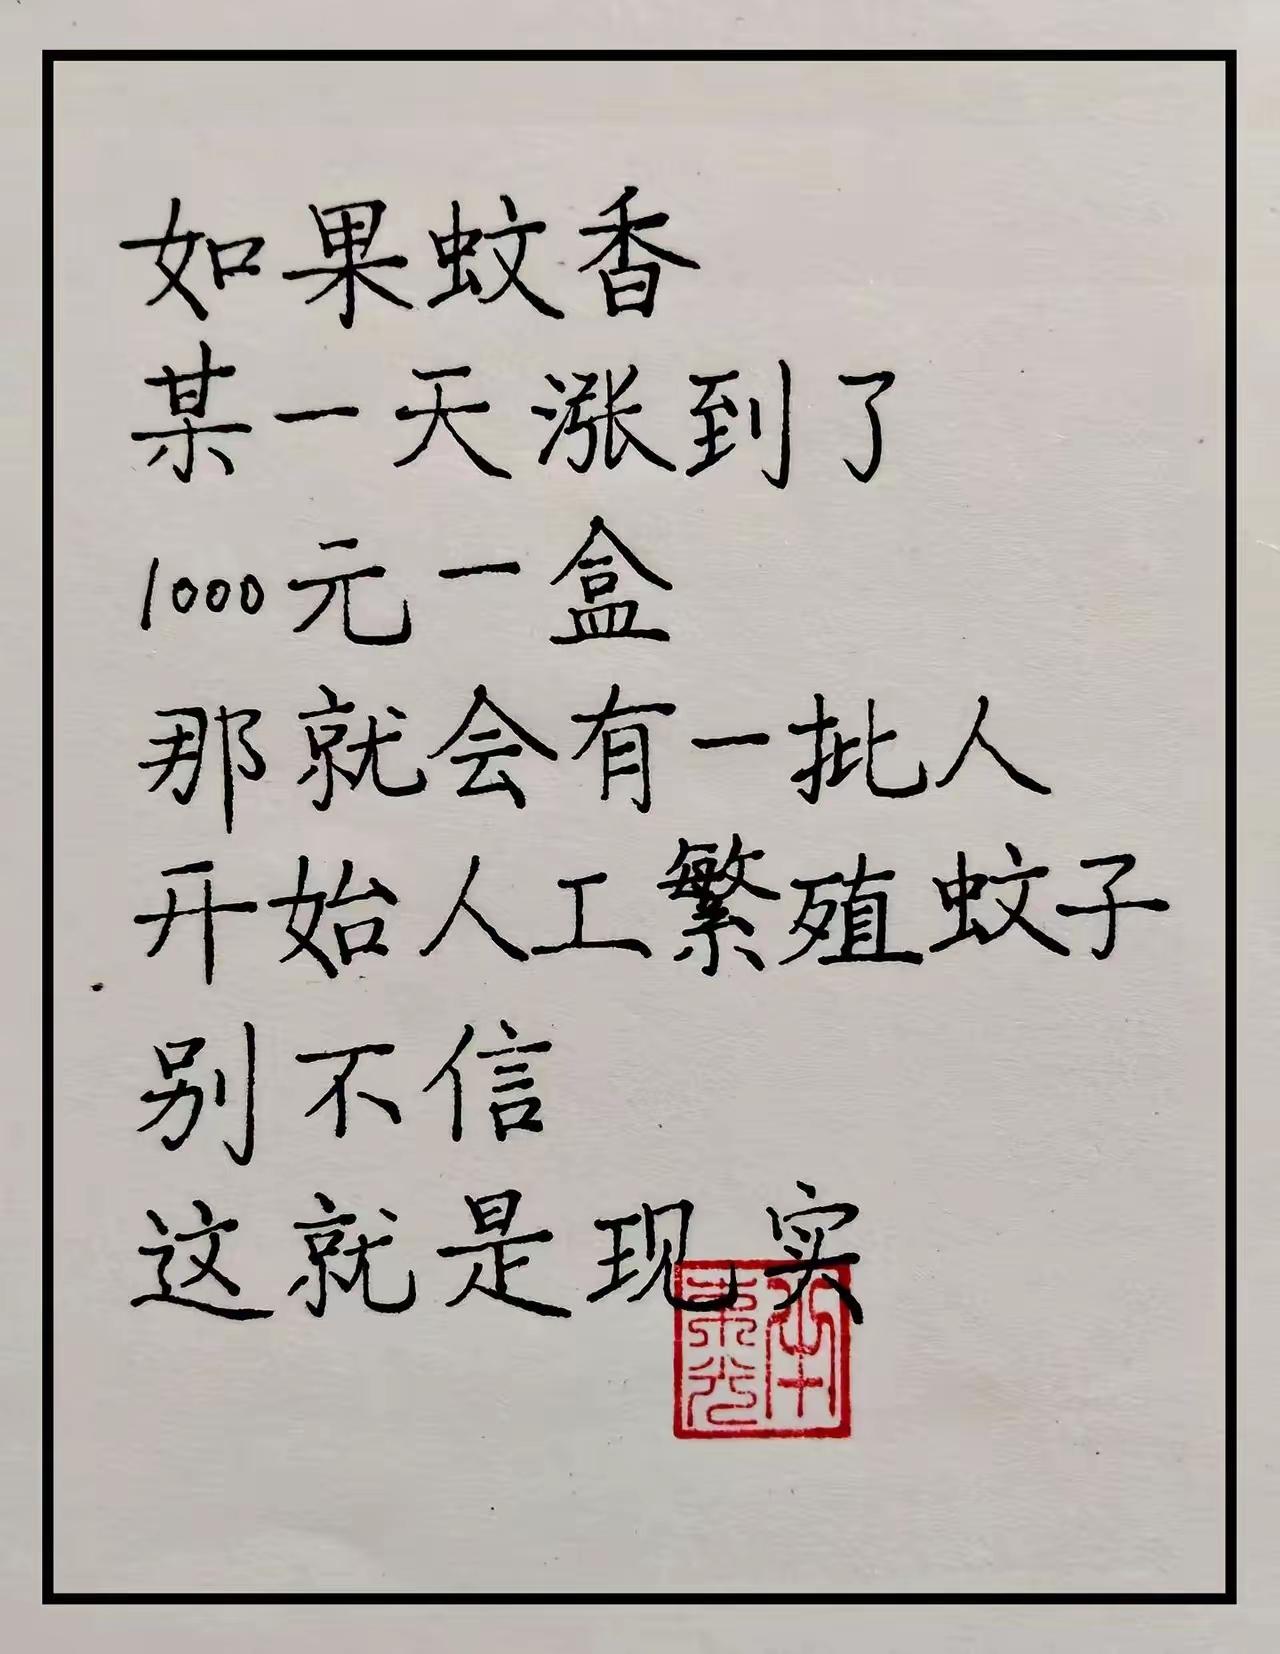 如果蚊香
某一天涨到了
1000元一盒
那就会有一批人
开始人工繁殖蚊子
别不信
这就是现实